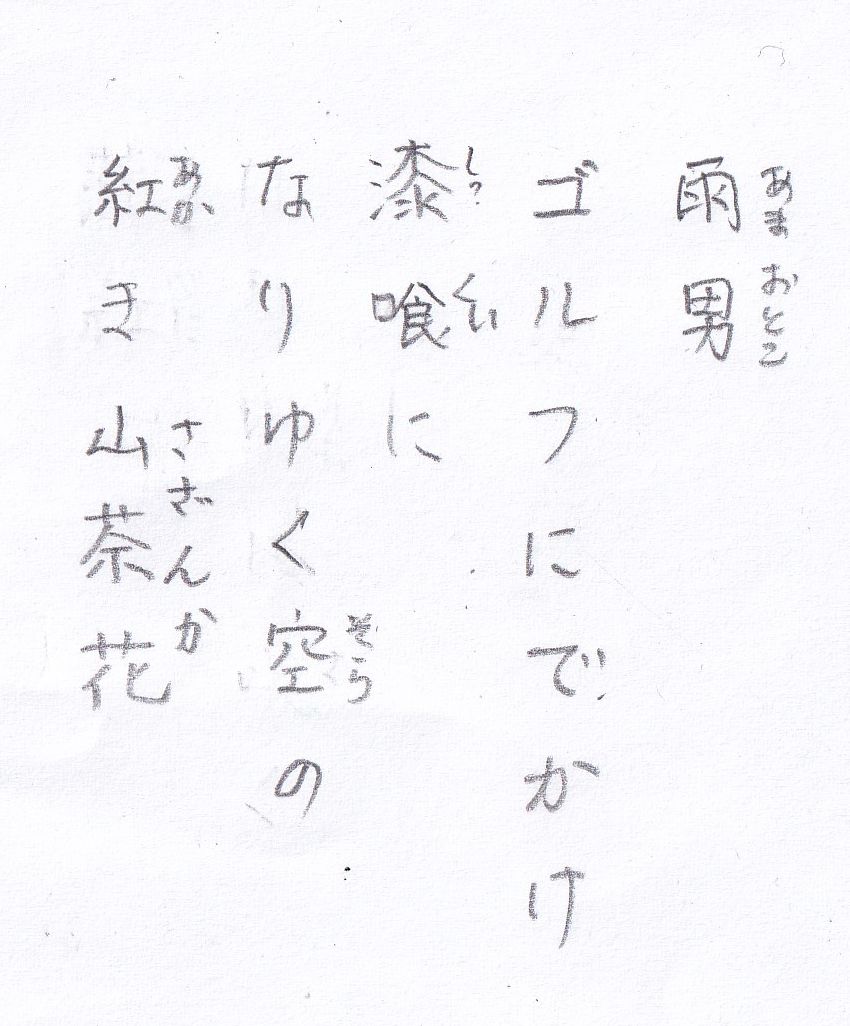 雨男
あまおとこ
ゴルフにでかけ
漆喰に
しっくい
なりゆく空の
そら
紅き山茶花
あか
さざんか